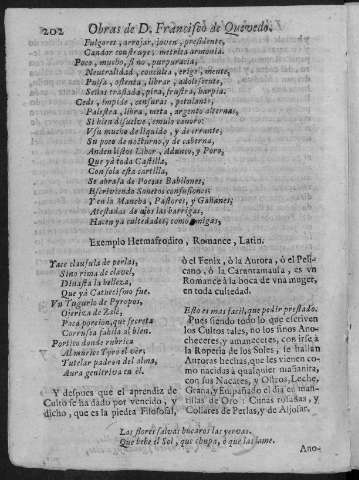 202 Obras de D. Francisco de Quevedo.
Fulgores, arrojar, joven, presiente,
Candor construye, metrica armonia.
Poco, mucho, si no, purpuracia,
Neutralidad, conculca, erige, mente,
Pulsa, ostenta, librar, adolescente,
Señas traslada, pira, frustra, harpia.
Cede, impide, censuras, petulante,
Palestra, libra, meta, argento, alterna,
Si bien disuelve, emulo canoro:
Usa mucho de liquido, y de errante,
Su poco de nocturno, y de caberna,
Anden listos Libor, Adunco, y Poro,
Que yà toda Castilla,
Con sola esta cartilla,
Se abrasa de Poetas Babilones,
Escriviendo Sonetos confusiones:
Y en la Mancha, Pastores, y Gañanes,
Atestadas de ajos las barrigas,
Hacen yà cultedades, como migas,
Exemplo Hermafrodito, Romance, Latin.
Yace clausula de perlas,
Sino rima de clavel,
Dinasta la belleza,
Que yà Catacismo fue.
Vn Tugurio de Pyropos,
Ojeriza de Zale,
Poca porcion, que secreta
Corrusca sabila al bien.
Portico donde rubrica
Al murice Tyro el ver,
Tutelar padron del alma,
Aura genitiva en èl.
Y despues que el aprendiz de
Culto se ha dado por vencido, y
dicho, que es la piedra Filosofal,
ò el Fenix, ò la Aurora, ò el Peli-
cano, ò la Carantamaula, es vn
Romance à la boca de vna muger,
en toda cultedad.
Esto es mas facil, que pedir prestado.
Pues siendo todo lo que escriven
los Cultos tales, no los finos Ano-
checeres, y amaneceres, con irse à
la Roperia de los Soles, se hallan
Auroras hechas, que les vienen co-
mo nacidas à qualquier mañanita,
con los Nacares, y Ostros, Leche,
Grana, y Empañado el dia en man-
tillas de Oro: Cunas rosadas, y
Collares de Perlas, y de Aljofar.
Las flores salvas bucaros las yervas.
Que bebe el Sol, que chupa, ò que las lame.
Ano-